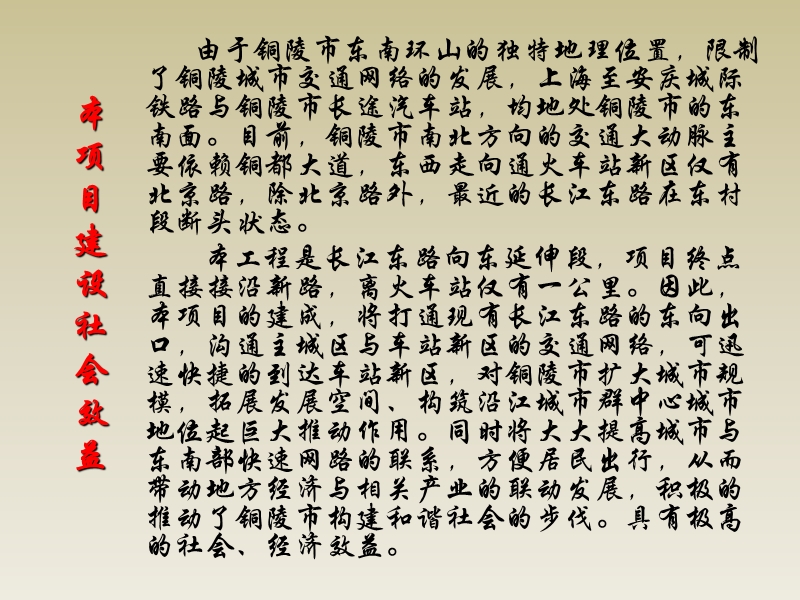 本项目建设社会效益
由于铜陵市东南环山的独特地理位置，限制
了铜陵城市交通网络的发展，上海至安庆城际
铁路与铜陵市长途汽车站，均地处铜陵市的东
南面。目前，铜陵市南北方向的交通大动脉主
要依赖铜都大道，东西走向通火车站新区仅有
北京路，除北京路外，最近的长江东路在东村
段断头状态。
本工程是长江东路向东延伸段，项目终点
直接接沿新路，离火车站仅有一公里。因此，
本项目的建成，将打通现有长江东路的东向出
口，沟通主城区与车站新区的交通网络，可迅
速快捷的到达车站新区，对铜陵市扩大城市规
模，拓展发展空间、构筑沿江城市群中心城市
地位起巨大推动作用。同时将大大提高城市与
东南部快速网路的联系，方便居民出行，从而
带动地方经济与相关产业的联动发展，积极的
推动了铜陵市构建和谐社会的步伐。具有极高
的社会、经济效益。